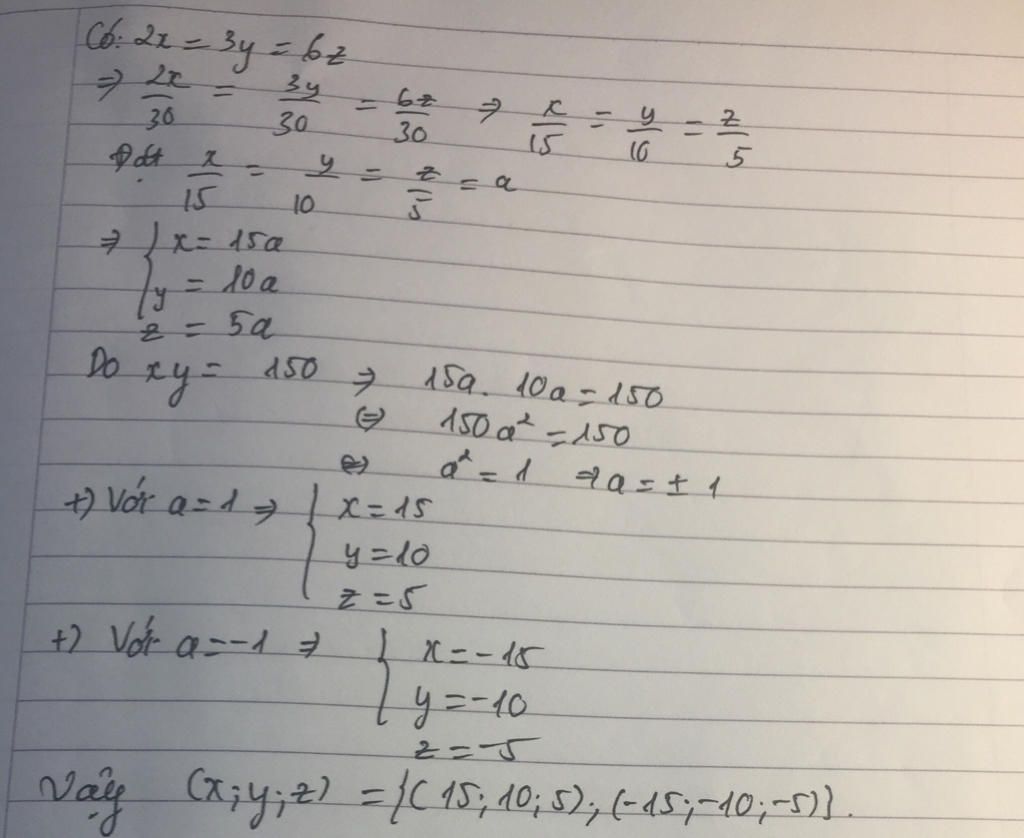 Có: 2x = 3y = 6z
⇒ 2x/30 = 3y/30 = 6z/30 ⇒ x/15 = y/10 = z/5
Đặt x/15 = y/10 = z/5 = a
⇒ { x = 15a
y = 10a
z = 5a
Do xy = 150 ⇒ 15a. 10a = 150
⇔ 150a² = 150
⇔ a² = 1 ⇒ a = ± 1
+) Với a = 1 ⇒ { x = 15
y = 10
z = 5
+) Với a = -1 ⇒ { x = -15
y = -10
z = -5
Vậy (x; y; z) = {(15; 10; 5); (-15; -10; -5)}.